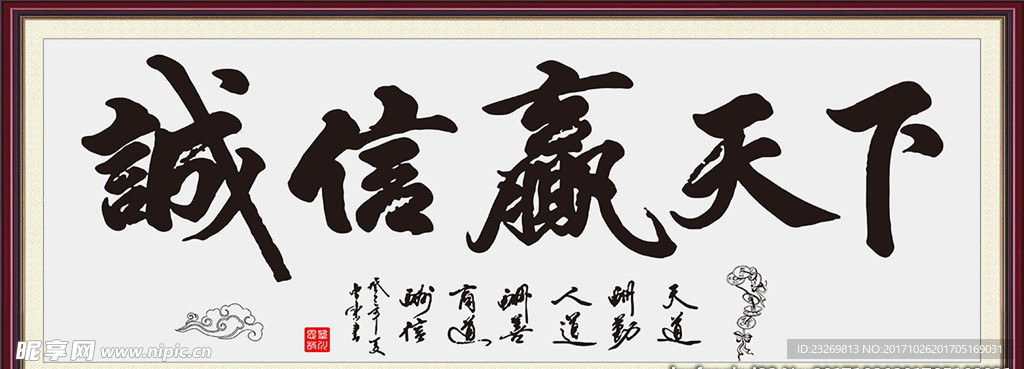 誠信贏天下
天道
酬勤
人道
酬善
商道
酬信
昵享网 www.nipic.cn
ID:23269813 NO:20171026201705169031